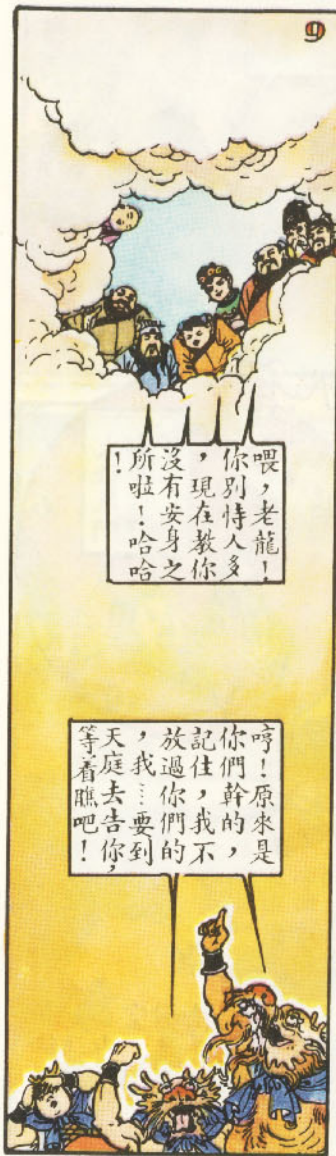 9
喂，老龍！
你別恃人多
，現在教你
沒有安身之
所啦！哈哈
！
哼！原來是
你們幹的，
記住，我不
放過你們的
，我…要到
天庭去告你，
等着瞧吧！